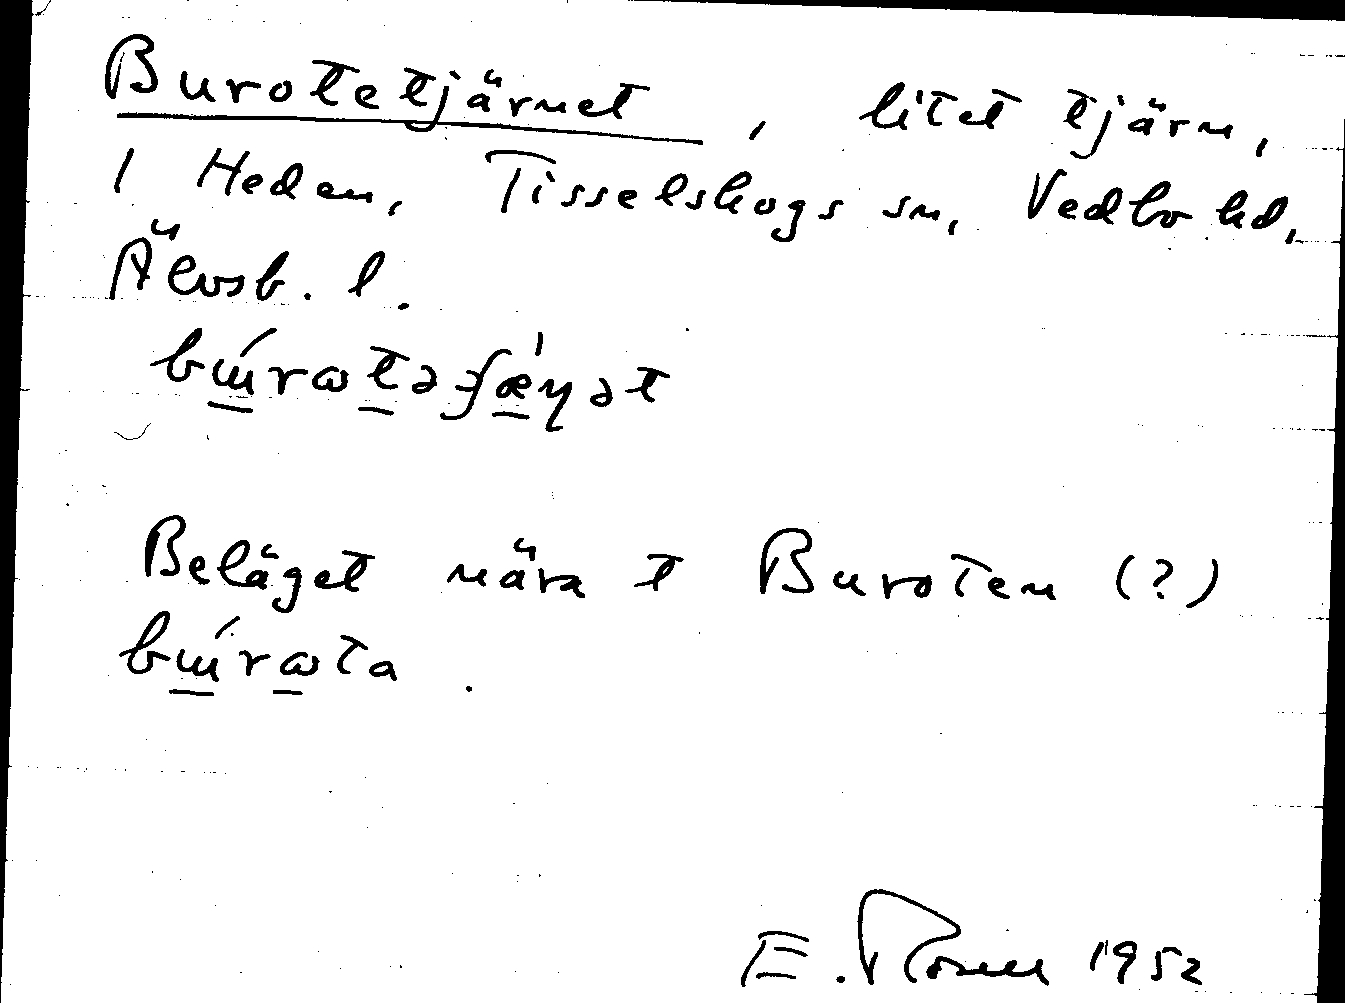 Burotetjärnet, litet tjärn,
1 Heden, Tisselskogs sn, Vedbo hd,
Älvsb. l.
Beläget nära t Buroten (?)
E. Rosell 1952